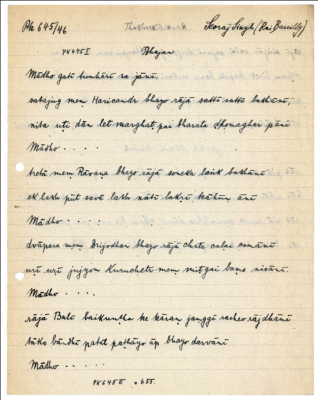 Ph 645/46 Sooraj Singh (Rai Bareilly)
PK645 I Bhajan
Mādho gati tumhārī na jānī.
satajug mem Haricandr bhayo rājā sattī sattī bakhānī,
nita uṭi dān let marghaṭ pai bharata ghar pānī
Mādho . . . .
tretā mem Rāvana bhayo rājā sonekī laṅk bakhānī
ek lakh pūt savā lakh nātī
Mādho . . . . .
dvāpara mem Drijodhan bhayo rājā chatr calai asmānī
uṛi uṛi jujyon Kuruchetr mem miṭgai bams nisānī.
Mādho . . . .
rājā Bali baikuṇṭha ke kāran jaggi racheo rājdhānī
bāndhi patāl paṭhāyo āp bhayo darvānī
Mādho . . . . .
PK645 II = 655.